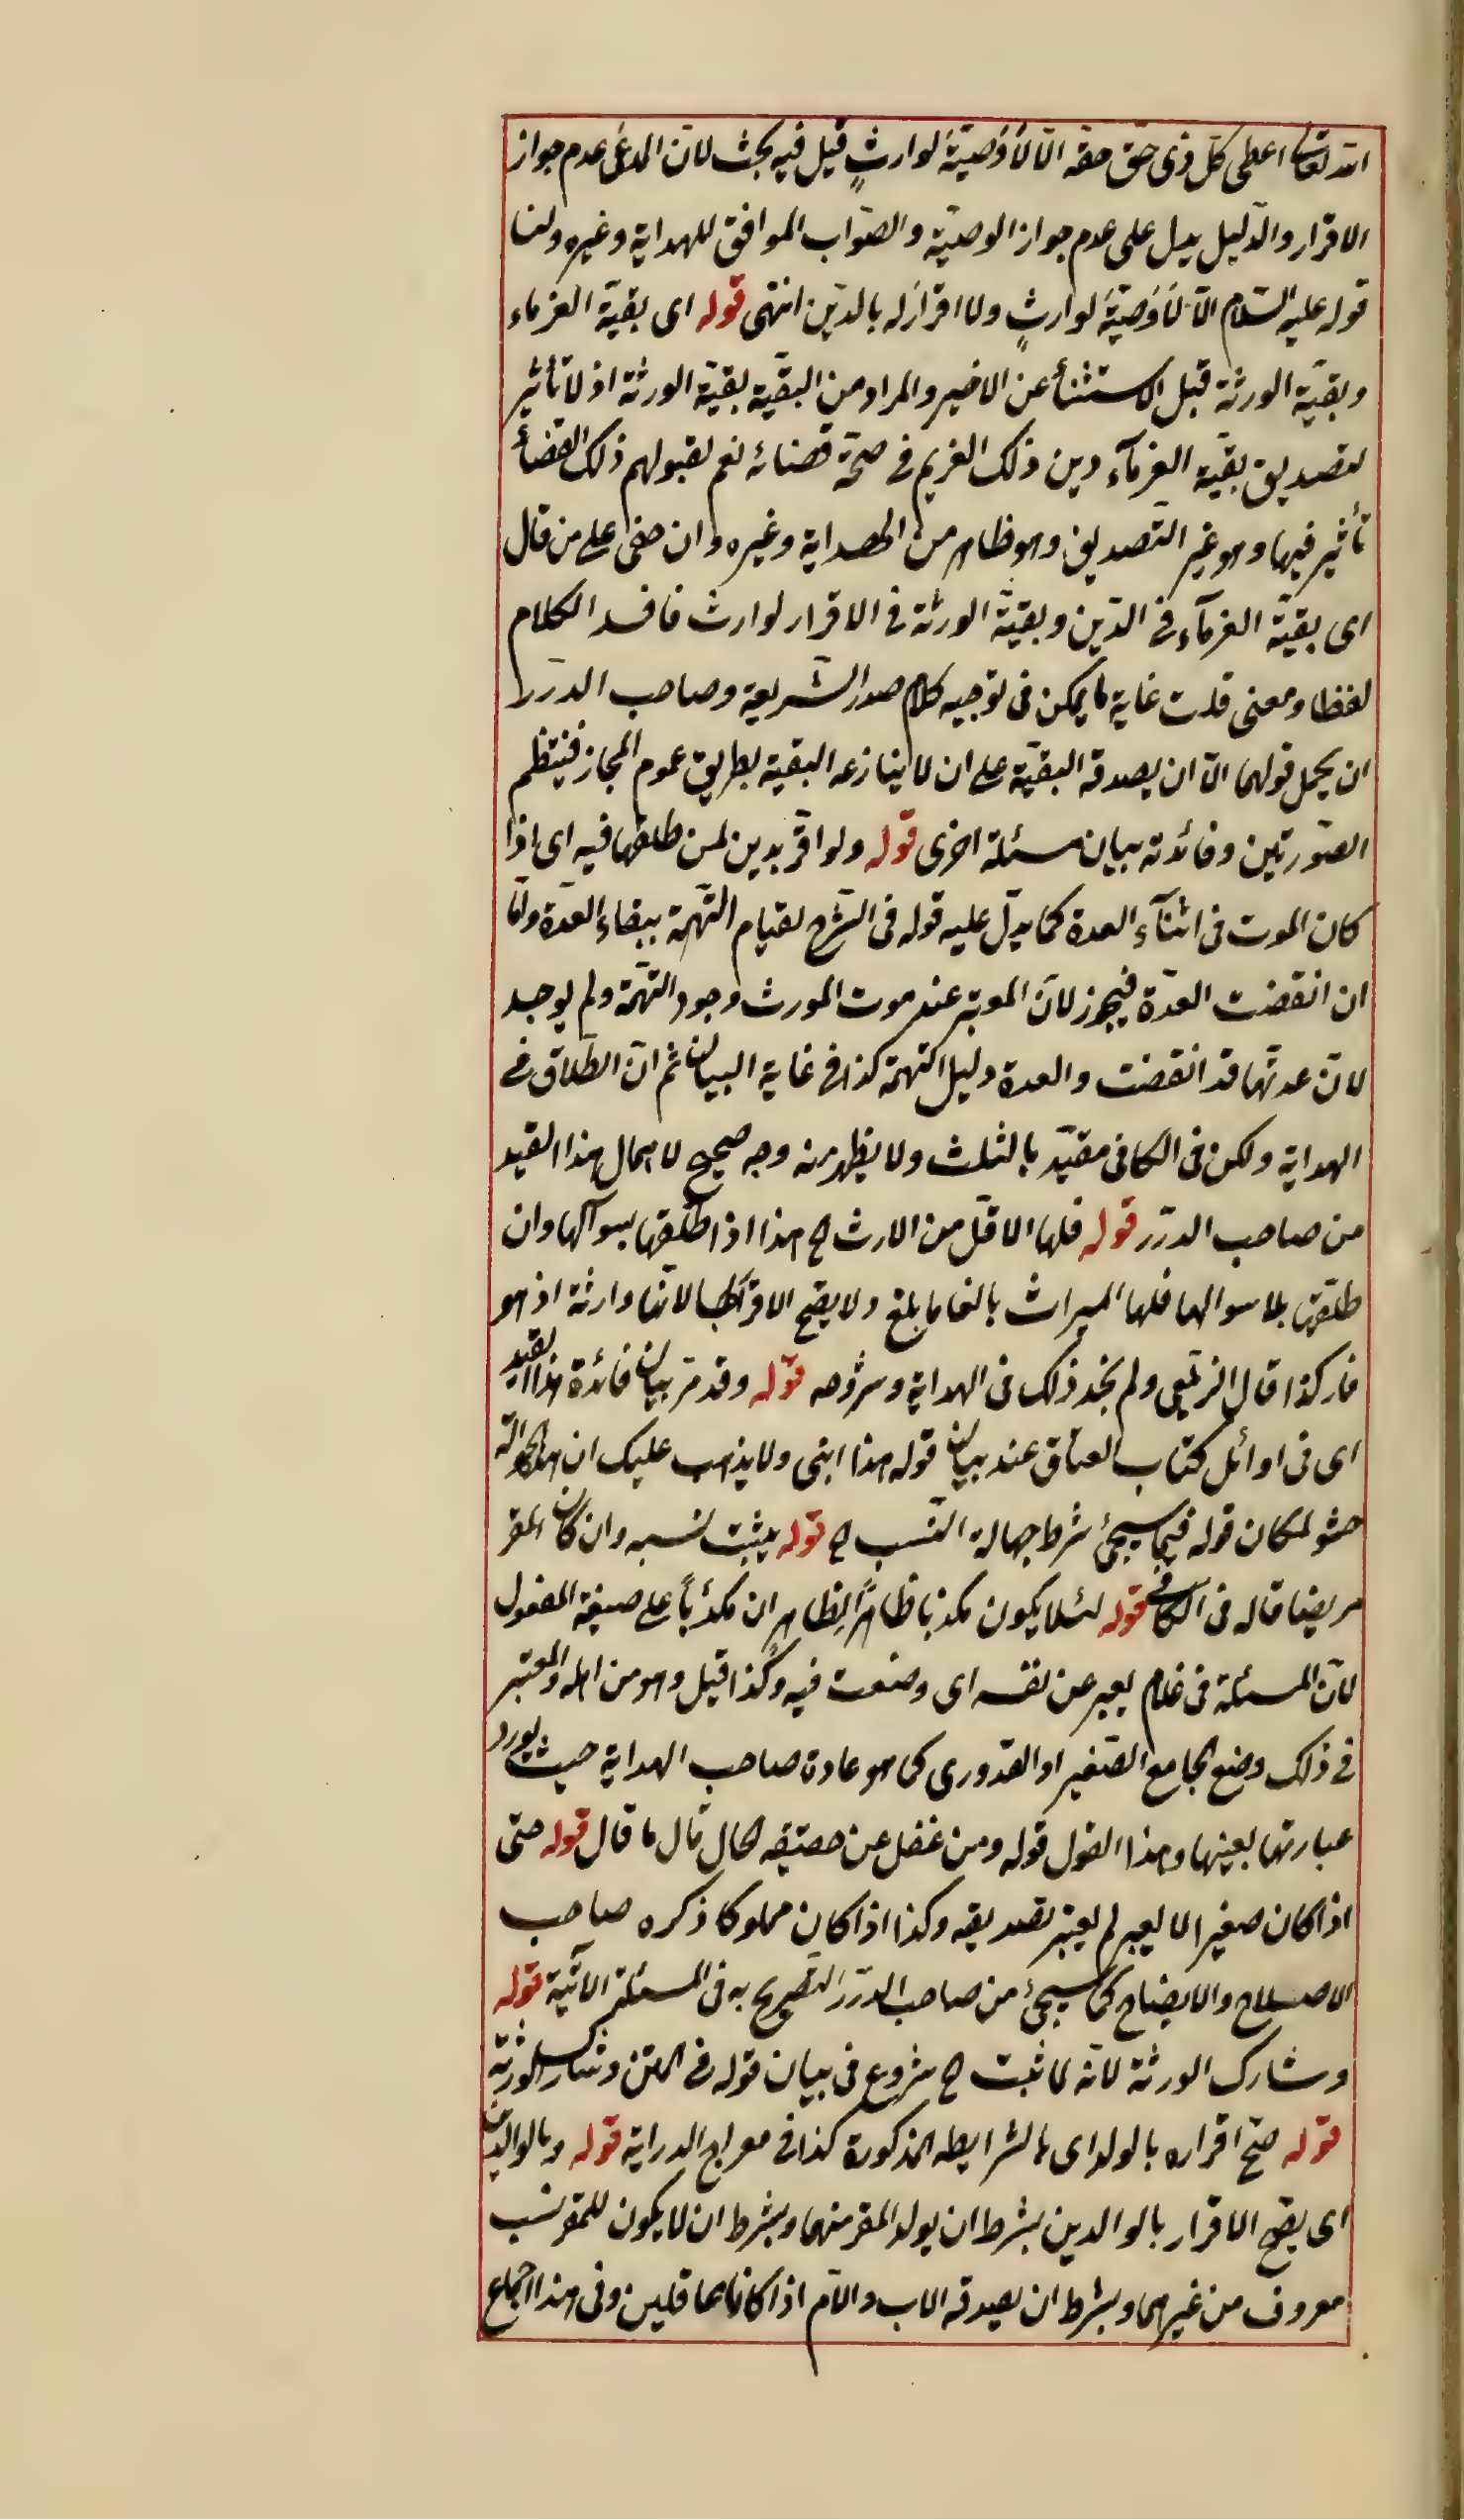 الله تعالى اعطى كلّ ذى حقّ حقّه الّا لا وَصيّةَ لوارثٍ قيل فيه بحث لانّ المدعى عدم جواز
الاقرار والدّليل يدل على عدم جواز الوصيّة والصّواب الموافق للهداية وغيره ولنا
قوله عليه السّلام الّا لا وَصيّةَ لوارثٍ ولا اقرارَ له بالدّين انتهى قوله اى بقيّة الغرماء
وبقيّة الورثة قبل الاستثنأ عن الاخير والمراد من البقيّة بقيّة الورثة اذ لا تأثير
لتصديق بقيّة الغرمآء دين ذلك الغريم فى صحّة قضائه نعم لقبولهم ذلك القضأ
تأثير فيها وهو غير التّصديق وهو ظاهر من الهداية وغيره وان خفى على من قال
اى بقيّة الغرمآء فى الدّين وبقيّة الورثة فى الاقرار لوارث فافسد الكلام
لفظا ومعنى قلت غاية ما يمكن فى توجيه كلام صدر الشّريعة وصاحب الدرر
ان يحمل قولهما الّا ان يصدقه البقيّة على ان لا ينازعه البقية بطريق عموم المجاز فينتظم
الصّورتين وفائدته بيان مسئلة اخرى قوله ولو اقرّ بدين لمن طلقها فيه اى اذا
كان الموت فى اثنآء العدة كما يدلّ عليه قوله فى الشّرح لقيام التّهمة ببقاء العدّة وامّا
ان انقضت العدّة فيجوز لانّ المعتبر عند موت المورث وجود التّهمة ولم يوجد
لانّ عدتها قد انقضت والعدة دليل التهمة كذا فى غاية البيان ثم انّ الطّلاق فى
الهداية ولكن فى الكافى مقيّد بالثلث ولا يظهر منه وجه صحيح لاهمال هذا القيد
من صاحب الدرر قوله فلها الاقلّ من الارث الخ هذا اذا طلّقها بسوآلها وان
طلّقها بلا سوالها فلها الميراث بالغا ما بلغ ولا يصحّ الاقرار لها لانّها وارثة اذ هو
فار كذا قال الزيلعى ولم نجد ذلك فى الهداية وشروحه قوله وقد مرّ بيان فائدة هذا القيد
اى فى اوائل كتاب العتاق عند بيان قوله هذا ابنى ولا يذهب عليك ان هذه الحوالة
حشو لمكان قوله فيما سيجئ شرط جهالة النّسب الخ قوله يثبت نسبه وان كان المقر
مريضا قاله فى الكافى قوله لئلا يكون مكذبا ظاهرًا الظاهر ان مكذّبا على صيغة المفعول
لانّ المسئلة فى غلام يعبر عن نفسه اى وضعت فيه وكذا قيل وهو من اهله والمعتبر
فى ذلك وضع الجامع الصّغير او القدورى كما هو عادة صاحب الهداية حيث يورد
عبارتها بعينها وهذا القول قوله ومن غفل عن حقيقة الحال قال ما قال قوله حتى
اذا كان صغيرا لا يعبر لم يعتبر تصديقه وكذا اذا كان مملوكا ذكره صاحب
الاصلاح والايضاح كما سيجئ من صاحب الدرر التصريح به فى المسئلة الآتية قوله
وشارك الورثة لانّه لما ثبت الخ شروع فى بيان قوله فى المتن وشارك الورثة
قوله صحّ اقراره بالولد اى بالشرايط المذكورة كذا فى معراج الدراية قوله وبالوالدين
اى يصحّ الاقرار بالوالدين بشرط ان يولد المقر منهما وبشرط ان لا يكون للمقر نسب
معروف من غيرهما وبشرط ان يصدقه الاب والامّ اذا كانا عاقلين وفى هذا اجماع